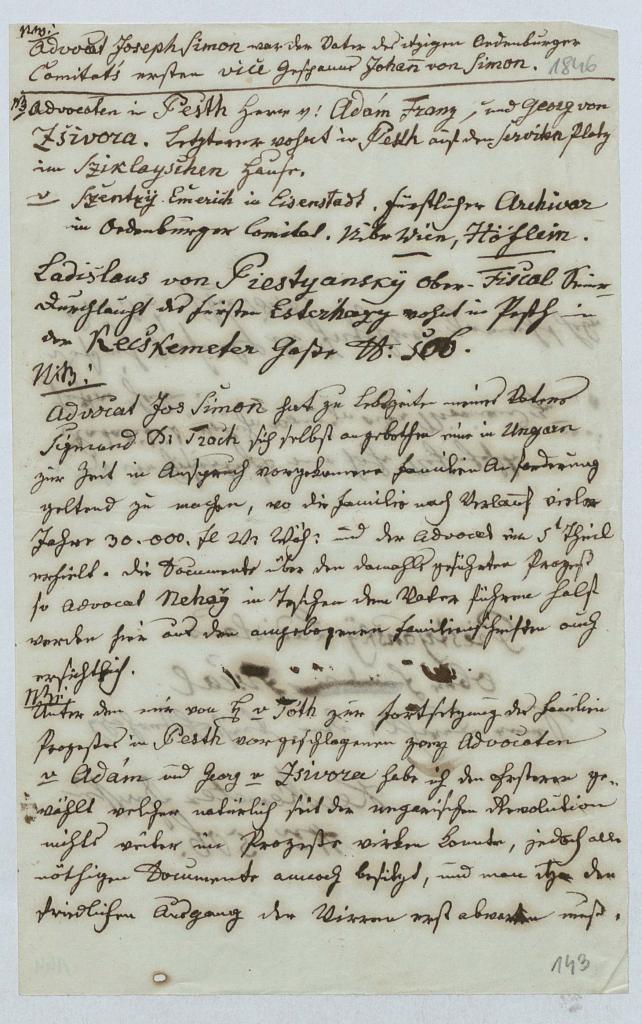 NB:
Advocat Joseph Simon war der Vater des itzigen Oedenburger
Comitats ersten vice Gespanns Johann von Simon. 1846
NB Advocaten in Pesth Herrn v: Adám Franz, und Georg von
Zsivora. Letzterer wohnt in Pesth auf den Serviten Platz
im Sziklayschen Hause.
v Szentzÿ Emerich in Eisenstadt. Fürstlicher Archivar
im Oedenburger Comitat. Wien, Höflein.
Ladislaus von Piestyanskÿ Ober-Fiscal Seiner
Durchlaucht des Fürsten Esterhazy wohnt in Pesth in
der Kecskemeter Gasse 506.
NB:
Advocat Jos Simon hat zu Lebzeite meines Vaters
Sigmund sich selbst angebothen eine in Ungarn
zur Zeit in Anspruch vorgekomene Familien Anforderung
geltend zu machen, wo die Familie nach Verlauf vieler
Jahre 30.000. fl W: Wäh: und der Advocat im 5t Theil
erhielt. Die Documente über den damahls geführten Prozeß
so Advocat Nehaÿ in Teschen dem Vater führen half
werden hier aus den angebogenen Familienschriften auch
ersichtlich.
NB:
Unter den mir von H v Tóth zur Fortsetzung des Familien
Prozeßes in Pesth vorgeschlagenen zwey Advocaten
v Adám und Georg v Zsivora habe ich den Ersteren ge-
wählt welcher natürlich seit der ungarischen Revolution
nichts weiter im Prozeße wirken konnte, jedoch alle
nöthigen Documente annoch besitzt, und man itzo den
friedlichen Ausgang der Wirren erst abwarten muß.
143